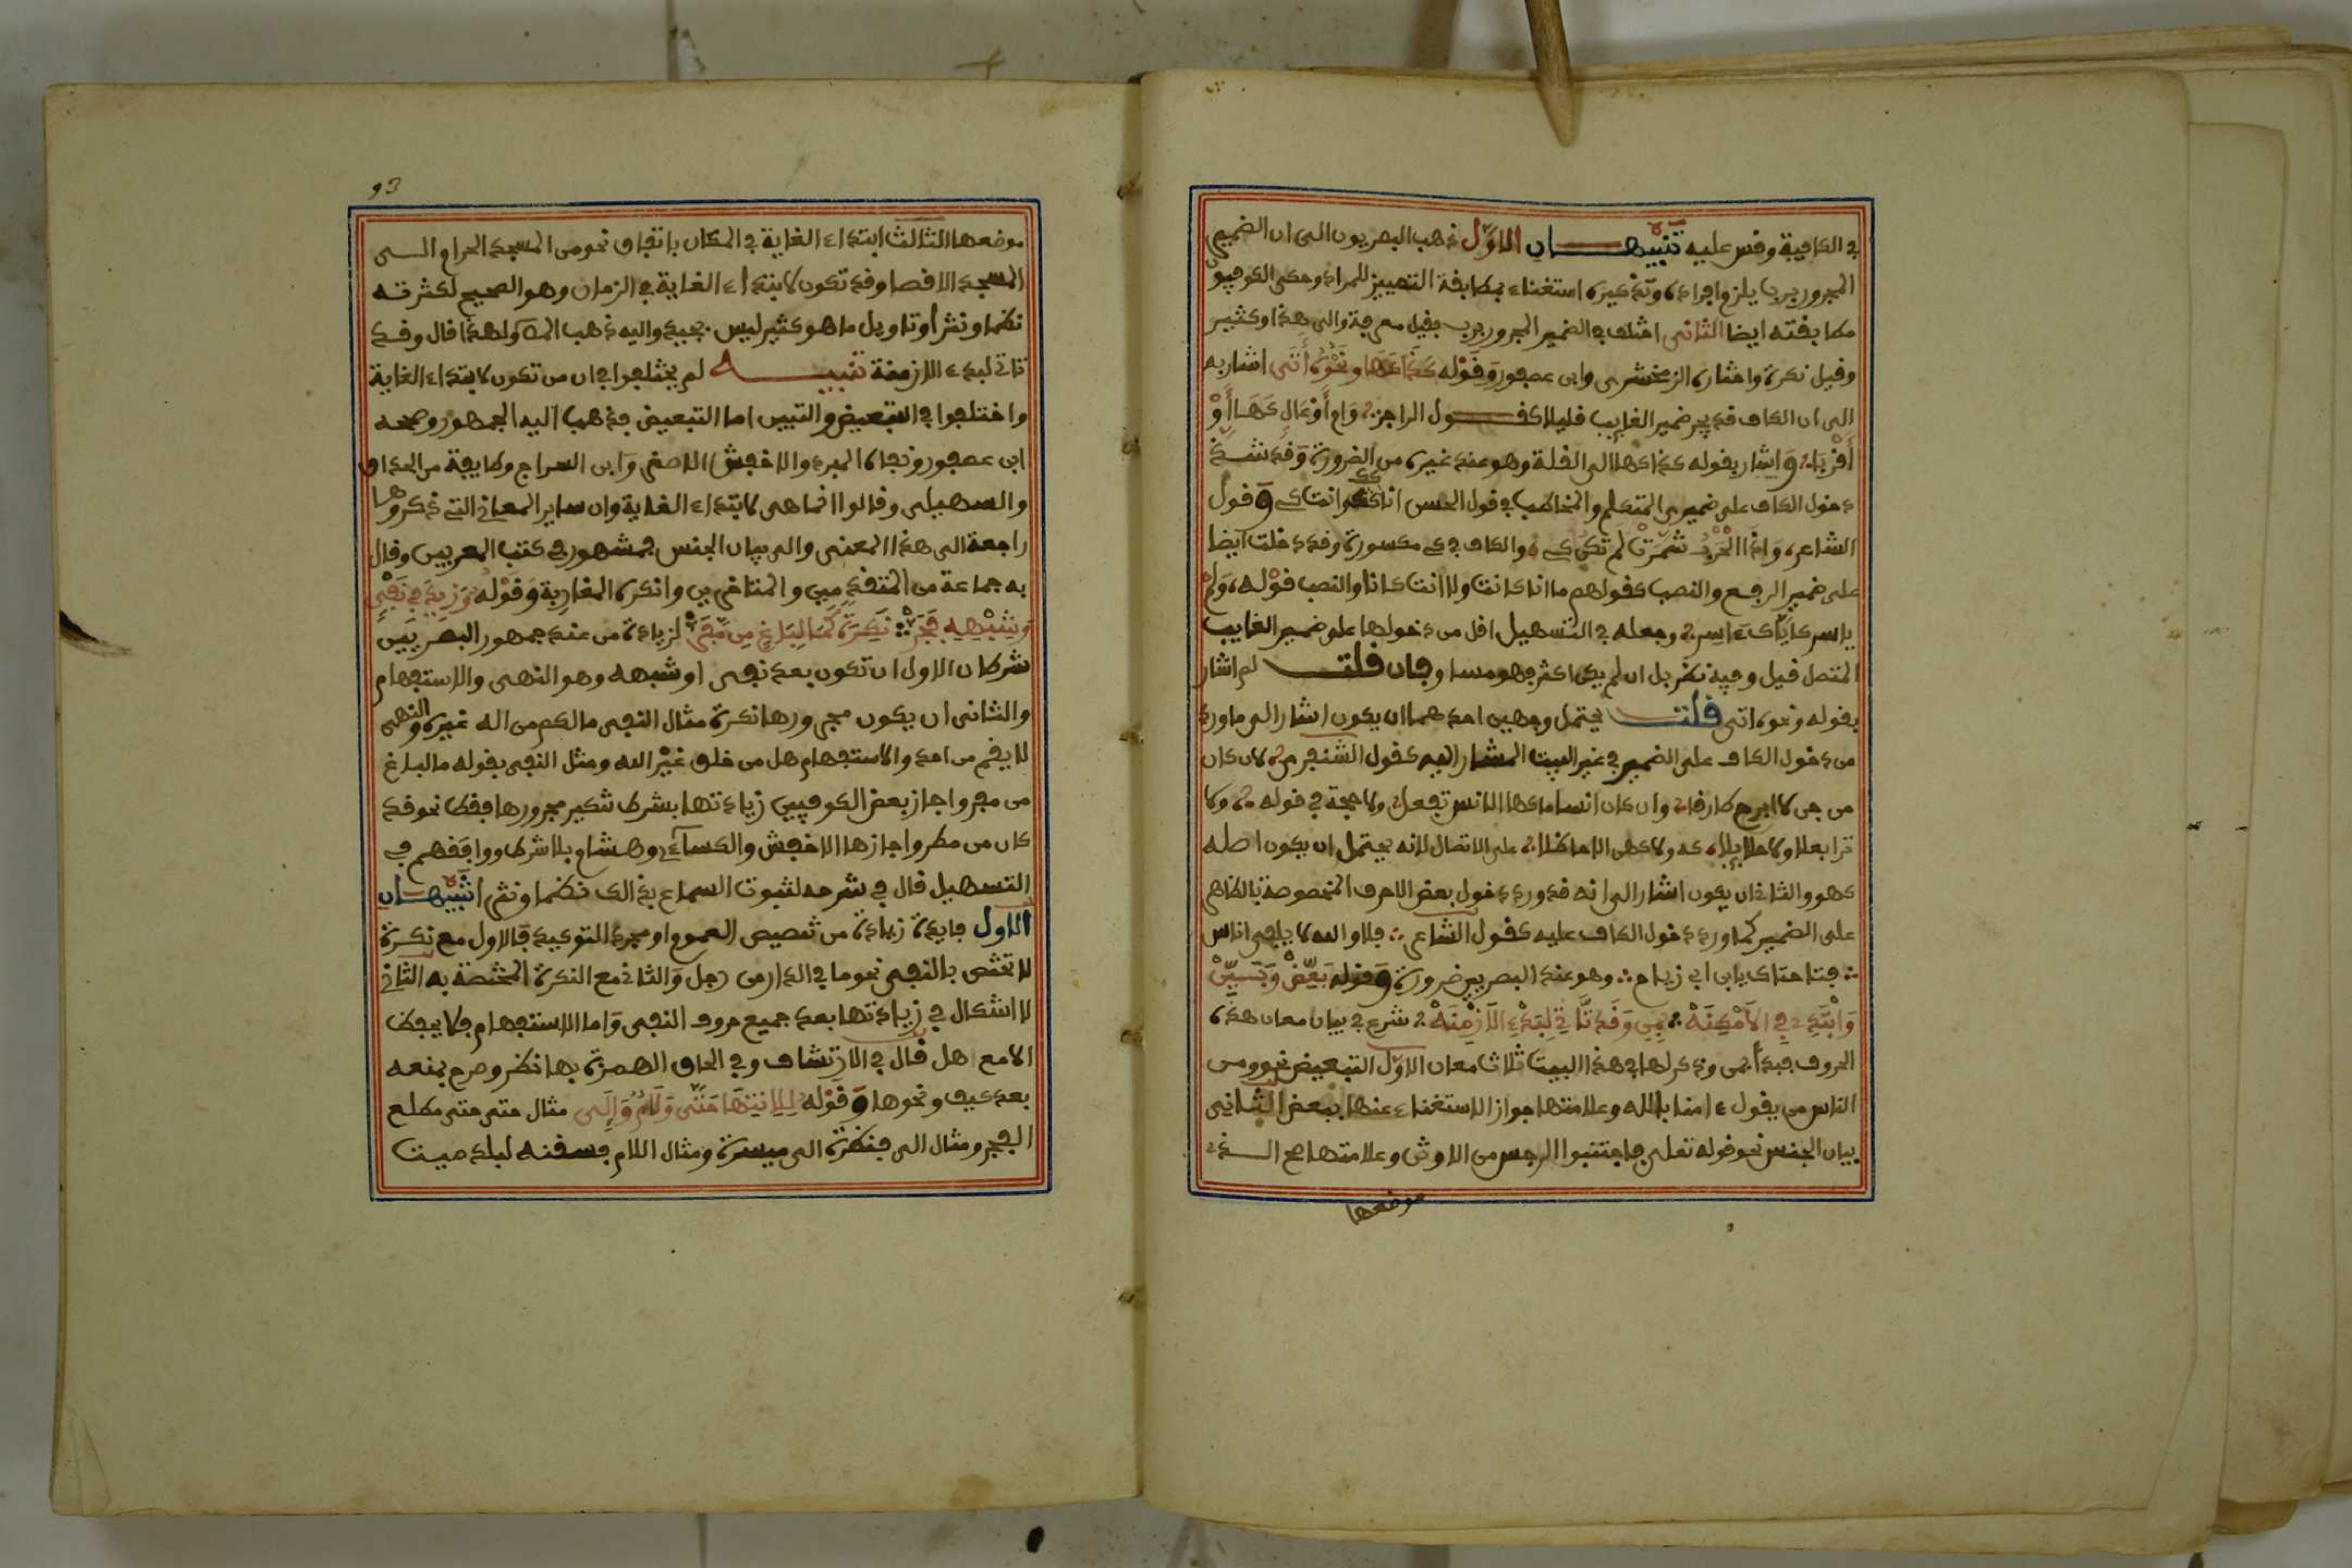 في الكافية وقس عليه تنبيهان الاول ذهب البصريون الى ان الضمير
المجرور برب يلزم افراده وتذكيره استغناء بمطابقة التمييز للمراد وحكى الكوفيون
مطابقته ايضا الثاني اختلف في الضمير المجرور برب فقيل معرفة والى هذا وكثير
وقيل نكرة واختاره الزمخشري وابن عصفور وقوله كذا كها ونحوه أتى اشار به
الى ان الكاف قد يجر ضمير الغايب قليلا كقول الراجز وام أوعال كها أو
أقربا واشار بقوله كذا كها الى القلة وهو عند غيره من الضرورة وقد شذ
دخول الكاف على ضميري المتكلم والمخاطب في قول الحسن انا كك وانت كي وقول
الشاعر واذا الحرب شمرت لم تكن كي والكاف في كي مكسورة وقد دخلت ايضا
على ضمير الرفع والنصب كقولهم ما انا كانت ولا انت كانا والنصب قوله ولم
ياسر كاياك ءاسر وجعله في التسهيل اقل من دخولها على ضمير الغايب
المتصل قيل وفيه نظر بل ان لم يكن اكثر فهو مساو فان قلت لم اشار
بقوله ونحوه اتى قلت يحتمل وجهين احدهما ان يكون اشار الى ما ورد
من دخول الكاف على الضمير في غير البيت المشار اليه كقول الشنفرى لان كان
من جن لا ابرح طارقا وان كان انسا ما كها الانس تفعل ولا حجة في قوله ولا
ترا بعلا ولا حلايلا كه ولا كهن الا حاظلا على الاتصال لانه يحتمل ان يكون اصله
كهو والثاني ان يكون اشار الى انه قد ورد دخول بعض الاحرف المخصوصة بالظاهر
على الضمير كما ورد دخول الكاف عليه كقول الشاعر فلا والله لا يلفى اناس
فتا حتاك يابن ابي زياد وهو عند البصريين ضرورة وقوله بعض وبين
وابتدئ في الامكنة بمن وقد تاتي لبدء الازمنة شرع في بيان معان هذه
الحروف فبدأ بمن وذكر لها في هذا البيت ثلاث معان الاول التبعيض نحو ومن
الناس من يقول ءامنا بالله وعلامتها جواز الاستغناء عنها ببعض الثاني
بيان الجنس نحو قوله تعلى فاجتنبوا الرجس من الاوثن وعلامتها صح الذي
موضعها
93
موضعها الثالث ابتداء الغاية في المكان باتفاق نحو من المسجد الحرام الى
المسجد الاقصا وقد تكون لابتداء الغاية في الزمان وهو الصحيح لكثرته
نظما ونثرا وتاويل ما هو كثير ليس بجيد واليه ذهب ولهذا قال وقد
تاتي لبدء الازمنة تنبيه لم يختلفوا في ان من تكون لابتداء الغاية
واختلفوا في التبعيض والتبيين اما التبعيض فذهب اليه الجمهور وصححه
ابن عصفور ونفاه المبرد والاخفش الاصغر وابن السراج وطايفة من الحذاق
والسهيلي وقالوا انما هي لابتداء الغاية وان ساير المعاني التي ذكروها
راجعة الى هذا المعنى والى بيان الجنس فمشهور في كتب المعربين وقال
به جماعة من المتقدمين والمتاخرين وانكره المغاربة وقوله وزيد في نفي
وشبهه فجر نكرة كما لباغ من مفر لزيادة من عند جمهور البصريين
شرطان الاول ان تكون بعد نفي او شبهه وهو النهي والاستفهام
والثاني ان يكون مجرورها نكرة مثال النفي ما لكم من اله غيره والنهي
لا يقم من احد والاستفهام هل من خلق غير الله ومثل النفي بقوله ما لباغ
من مفر واجاز بعض الكوفيين زيادتها بشرط تنكير مجرورها فقط نحو قد
كان من مطر واجازها الاخفش والكساءي وهشام بلا شرط ووافقهم في
التسهيل قال في شرحه لثبوت السماع بذالك نظما ونثرا تنبيهان
الاول فايدة زيادة من تنصيص العموم او مجرد التوكيد فالاول مع نكرة
لا تختص بالنفي نحو ما في الدار من رجل والثاني مع النكرة المختصة به الثاني
لا اشكال في زيادتها بعد جميع حروف النفي واما الاستفهام فلا يحفظ
الا مع هل قال في الارتشاف وفي الحاق الهمزة بها نظر وصرح بمنعه
بعد كيف ونحوها وقوله للانتها حتى ولام وإلى مثال حتى حتى مطلع
الفجر ومثال الى فنظرة الى ميسرة ومثال اللام فسقنه لبلد ميت